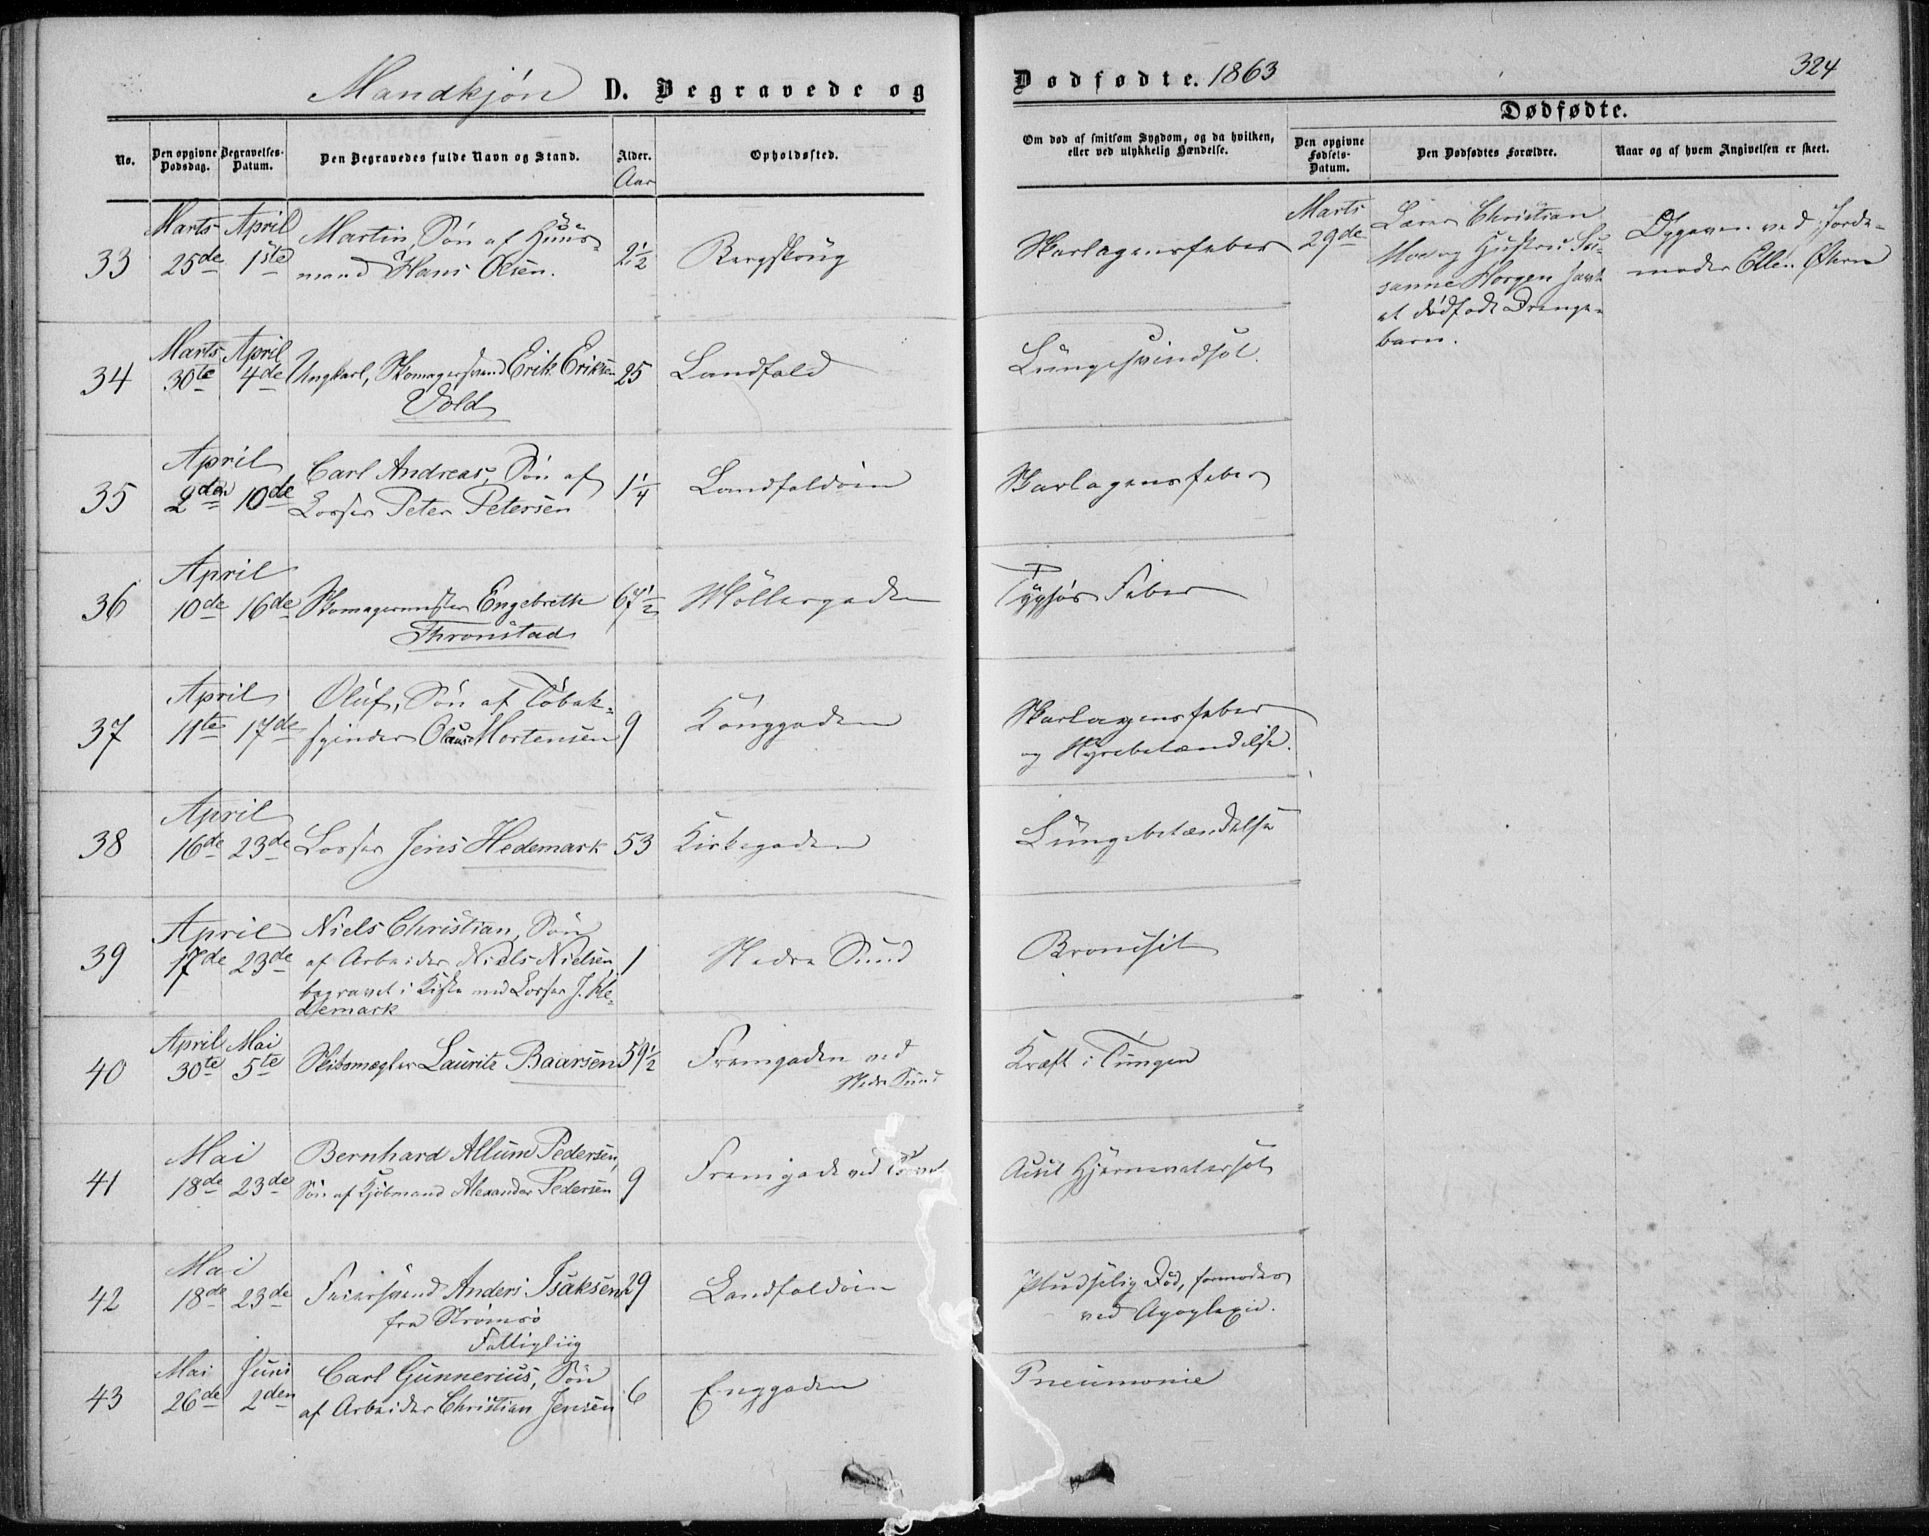 Mandkjøn D. Begravede og Dødfødte. 1863
324
Dødfødte.
No.
Den opgivne Dødsdag.
Begravelses-Datum.
Den Begravedes fulde Navn og Stand.
Alder.
Aar
Opholdssted.
Om død af smitsom Sygdom, og da hvilken, eller ved ulykkelig Hændelse.
Den opgivne Fødsels-Datum.
Den Dødfødtes Forældre.
Naar og af hvem Angivelsen er skeet.
33 Marts 25de April 1ste Martin, Søn af Huus-
mand Hans Olsen. 2½ Bergskoug Skarlagensfeber
Marts 29de
Christian
Moe og Hustru Su-
sanne Horgen havt
et dødfødt Drenge-
barn.
Opgaven ved Jorde-
moder Ellen
34 Marts 30te April 4de Ungkarl, Skomagersvend Erik Eriksen 25 Landfald Lungesvindsot.
Vold
35 April 2den 10de Carl Andreas, Søn af
Losser Peter Petersen 1¼ Landfaldøen Skarlagensfeber
36 April 10de 16de Skomagermester Engebreth 67½ Møllergaden Typhøs Feber
Thronstad
37 April 11te 17de Oluf, Søn af Tobak-
spinder Olaus Mortensen 9 Konggaden Skarlagensfeber
og Nyrebetændelse.
38 April 16de 23de Losser Jens Hedemark 53 Kirkegaden Lungebetændelse
39 April 17de 23de Niels Christian, Søn
af Arbeider Niels Nielsen, 1 Nedre Sund Bronchit
begravet i Kiste med Losser J. He-
demark
40 April 30te Mai 5te Skibsmægler Lauritz Baarsen 59½ Fremgaden ved
Nedre Sund Kræft i Tungen
41 Mai 18de 23de Bernhard Allum Pedersen,
Søn af Kjøbmand Alexander Pedersen 9 Fremgade ved Torvet Acut Hjernevatersot
42 Mai 18de 23de Feiersvend Anders Isaksen 29 Landfaldøen Pludselig Død, formoder
fra Strømsø ved Apoplexie.
Fattigliig
43 Mai 26de Juni 2den Carl Gunnerius, Søn
af Arbeider Christian Jensen 6 Enggaden Pneumonie